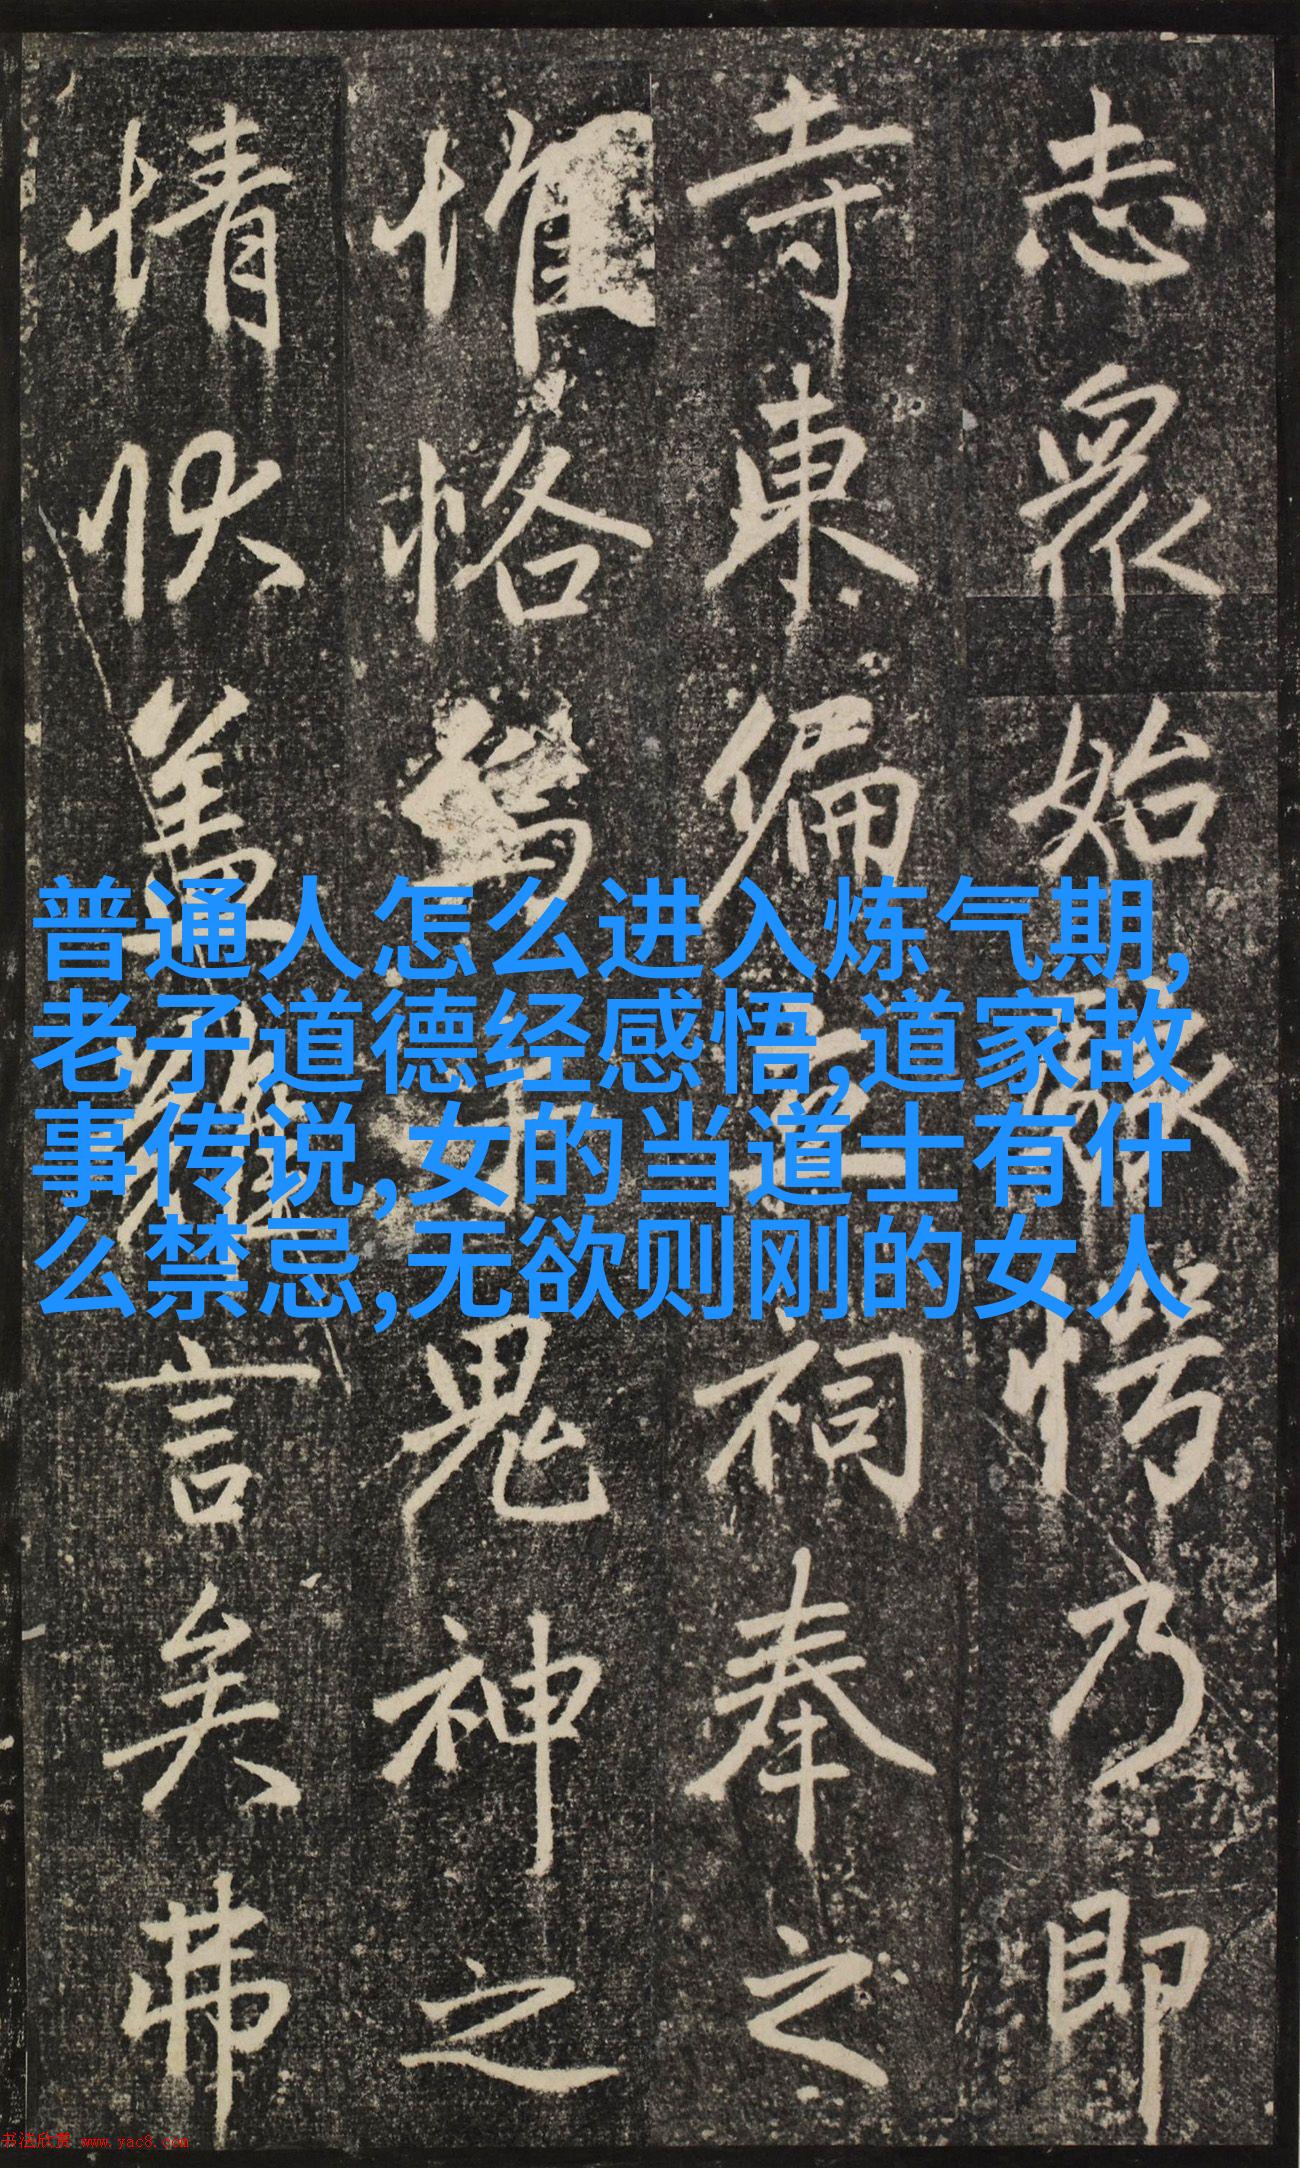 志衆始駭愕乃即
寺東偏祠奉之
惟恪鬼神之
情状盖難言矣弗
普通人怎么进入炼气期,
老子道德经感悟,道家故
事传说,女的当道士有什
么禁忌,无欲则刚的女人
书法欣赏 www.yac8.com